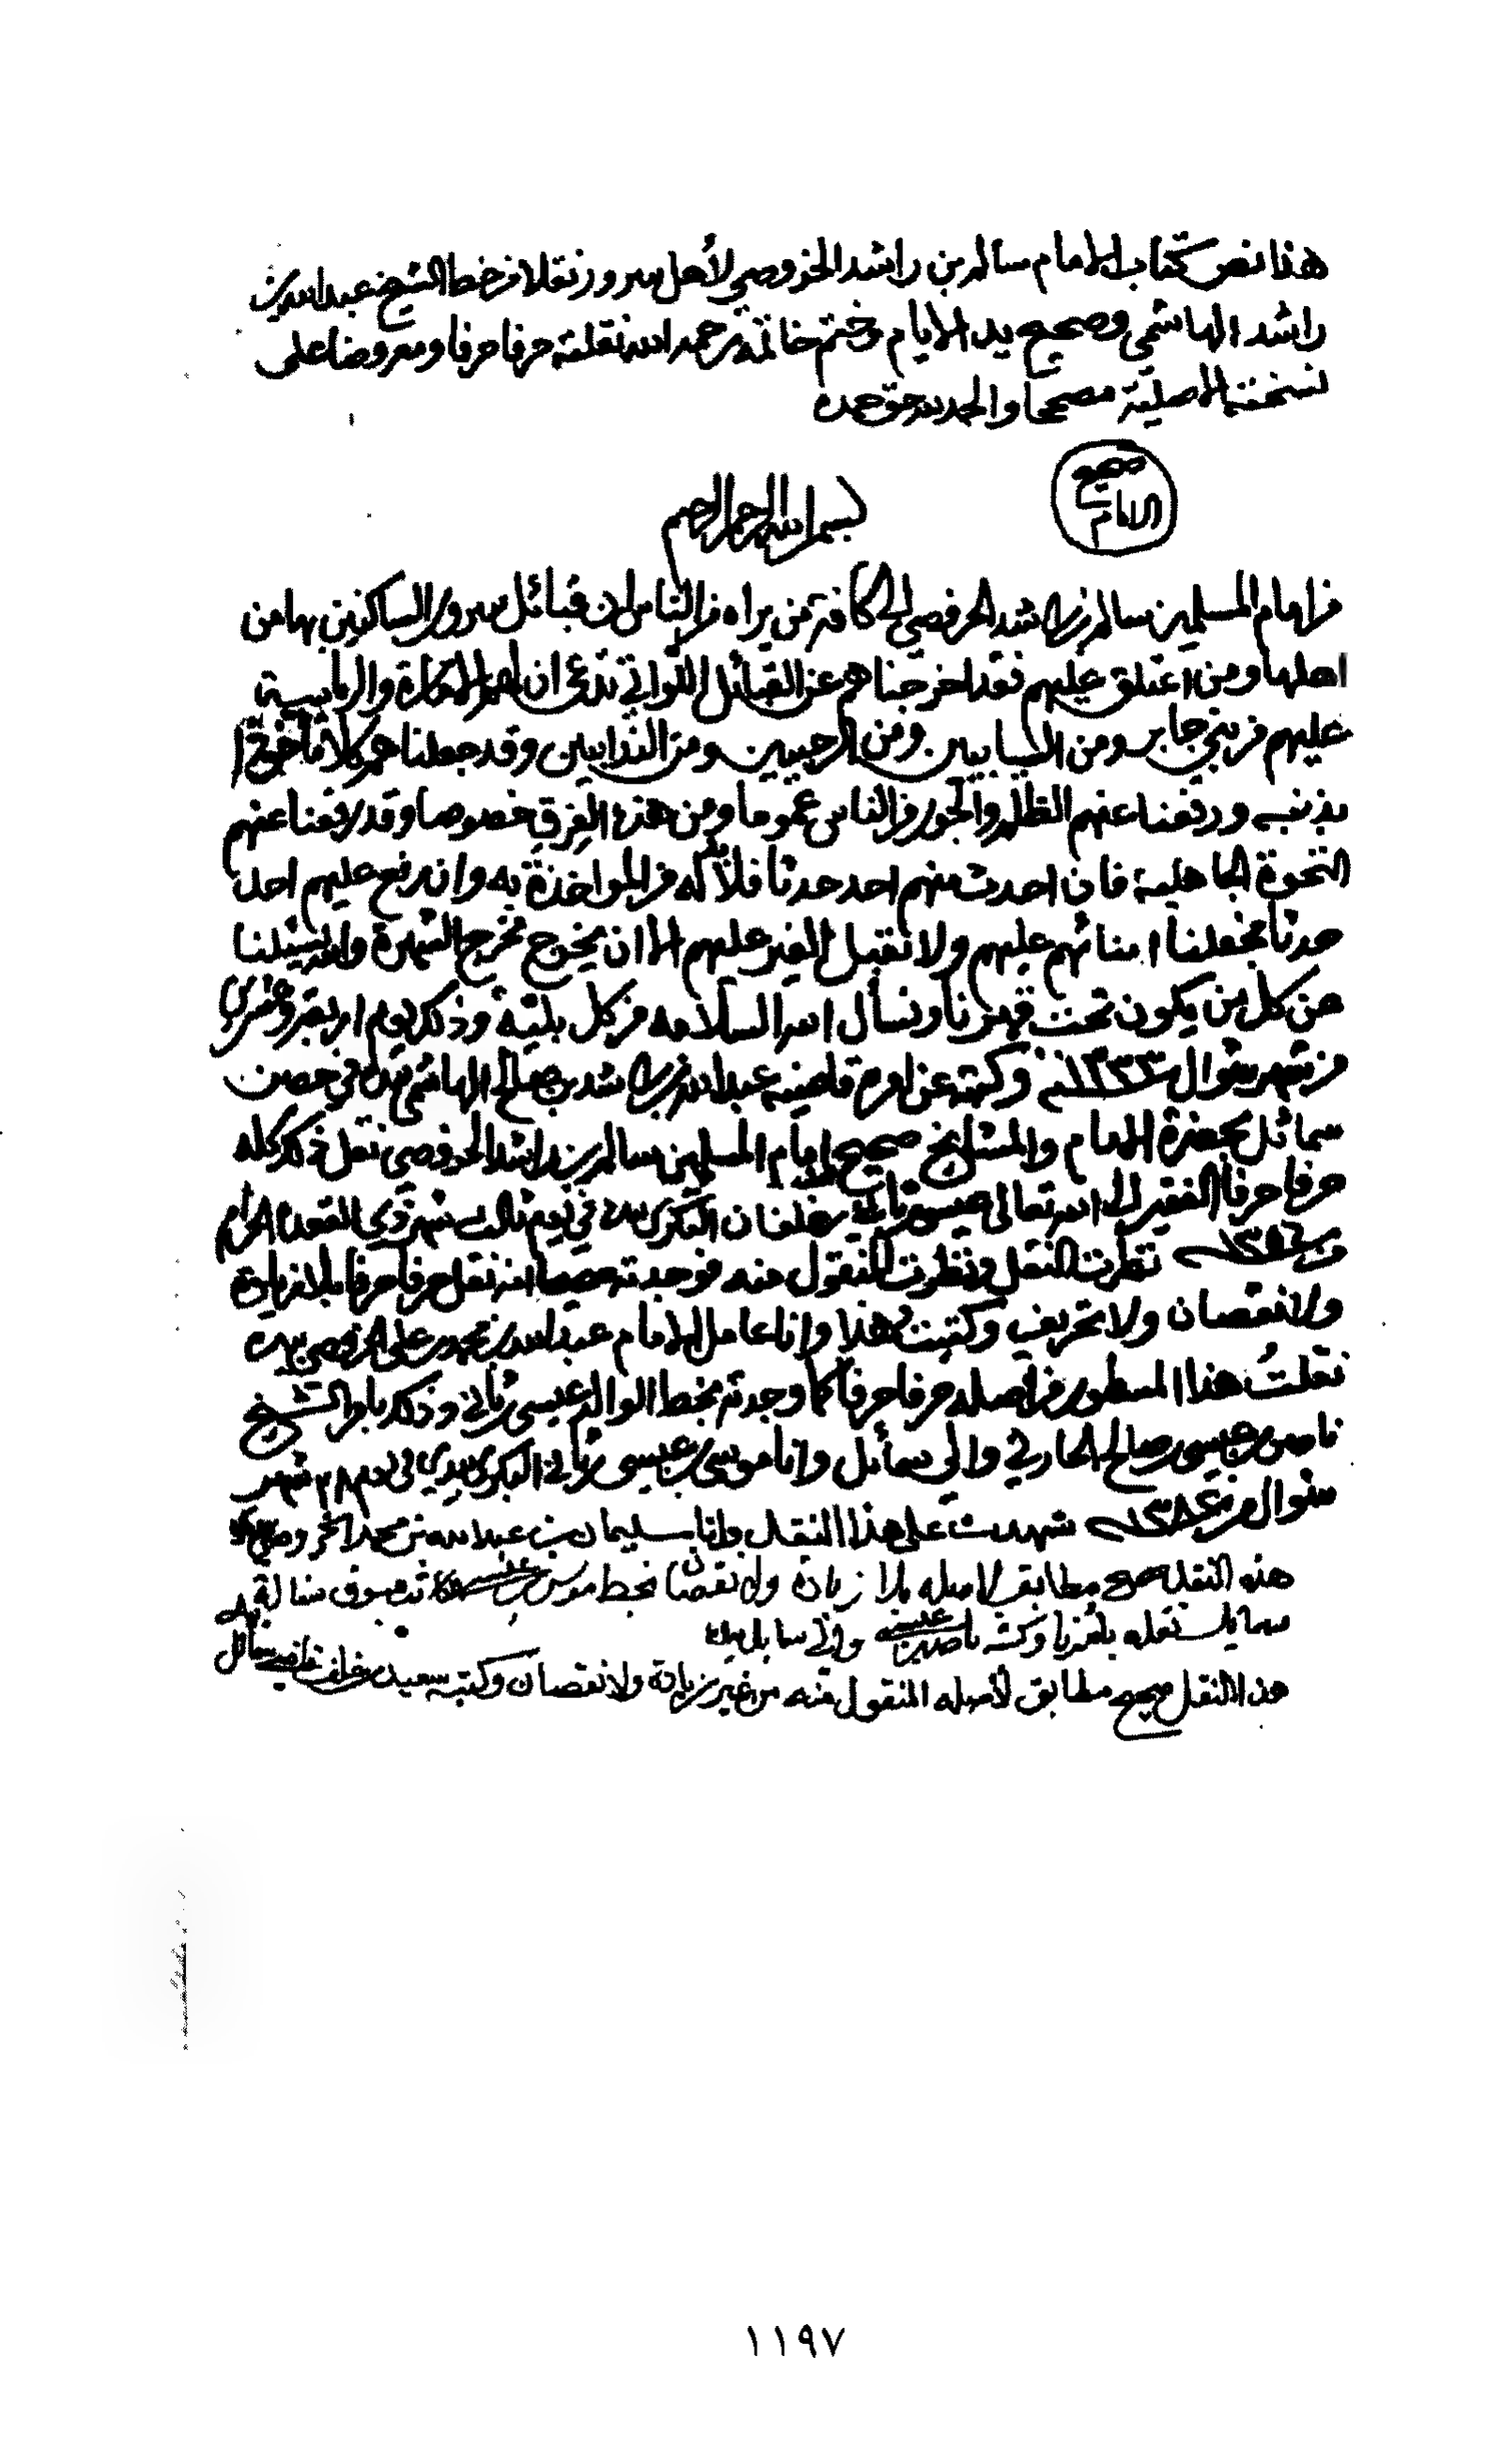 هذا نص كتاب الامام سالم بن راشد الخروصي لأهل سرور نقلا من خط الشيخ عبدالله بن
راشد الهاشمي وصحيح يد الامام وختم خاتمه رحمه الله نقلته حرفا حرفا ومعروضا على
نسخته الاصلية مصححا والحمد لله حق حمده
صحيح الامام
بسم الله الرحمن الرحيم
من امام المسلمين سالم بن راشد الخروصي الى كافة من يراه من الناس ان قبائل سرور الساكنين بها من
اهلها ومن اعتلق عليهم فقد اخرجناهم عن القبائل اللواتي تدعي ان لهم الامارة والرئاسة
عليهم من بني جابر ومن السيابيين ومن الرحبيين ومن الندابيين وقد جعلناهم كلا مأخوذا
بذنبه ورفعنا عنهم الظلم والجور من الناس عموما ومن هذه الفرق خصوصا وقد رفعنا عنهم
النخوة الجاهلية فان احدث منهم احد حدثا فلا بد له من المواخذة به وان رفع عليهم احد
حدثا فجعلنا امنائهم عليهم ولا نقبل الغير عليهم الا ان يخرج مخرج الشهرة والله يسئلنا
عن كل من يكون تحت قهرنا ونسأل الله السلامه من كل بلية وذلك يوم اربعة وعشرين
من شهر شوال سنة ١٣٣٣ وكتبه عن امره قاضيه عبدالله بن راشد بن صالح الهاشمي بيده في حصن
سمائل بحضرة الامام والمشايخ صحيح امام المسلمين سالم بن راشد الخروصي نقل ذلك كله
حرفا حرفا الفقير الى الله تعالى عيسى بن ثاني بن خلفان البكري بيده في يوم ثالث شهر ذي القعدة الحرام
من سنة نظرت النقل ونظرت المنقول منه فوجدته صحيحا انه نقل حرفا حرفا بلا زيادة
ولا نقصان ولا تحريف وكتبت هذا وانا عامل الامام عبدالله بن محمد بن علي الخروصي بيده
نقلتُ هذا المسطور من اصله حرفا حرفا كما وجدته بخط الوالد عيسى بن ثاني وذلك بامر الشيخ
ناصر بن عيسى بن صالح الحارثي والي سمائل وانا موسى بن عيسى بن ثاني البكري بيدي في يوم ٢٨ شهر
شوال سنة شهدت على هذا النقل وانا سليمان بن عبدالله بن محمد الخروصي
هذه النقلة صح مطابق لاصله بلا زيادة ولا نقصان بخط موسى بن عيسى
سمايل وكتبه ناصر بن عيسى والي سمايل بيده
هذا النقل صحيح مطابق لأصله المنقول منه من غير زيادة ولا نقصان وكتبه سعيد بن خلف قاضي سمائل
١١٩٧